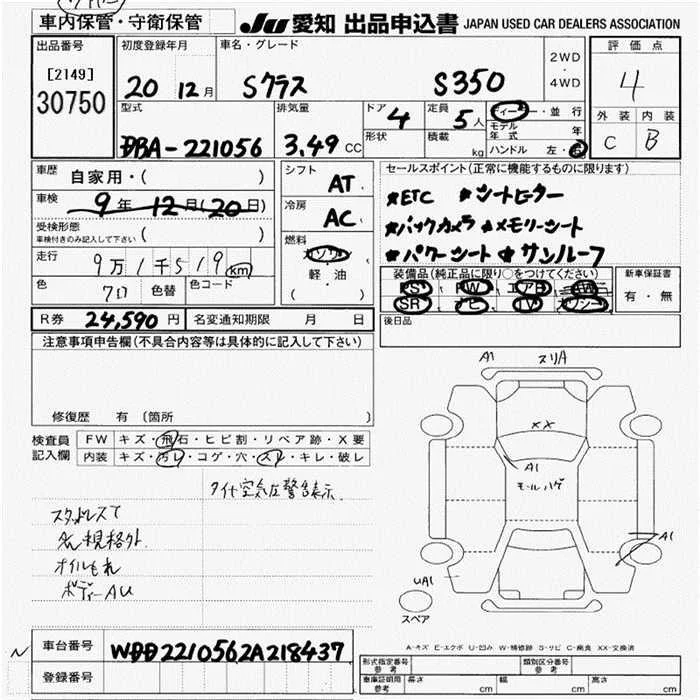 車内保管・守衛保管
JU 愛知 出品申込書 JAPAN USED CAR DEALERS ASSOCIATION
出品番号
[2149]
30750
初度登録年月
20 12月
車名・グレード
Sクラス S350
2WD
・
4WD
評価点
4
外装 内装
C B
型式
DBA-221056
排気量
3.49 CC
ドア
4
形状
定員
5人
積載
kg
ディーラー・並行
モデル年式 年
ハンドル 左・右
車歴
自家用・( )
車検
9年12月(20日)
受検形態
車検付きのみ記入して下さい ( )
走行
9万1千519km
色
クロ
色替
色コード
シフト
AT
冷房
AC
燃料
ガソリン
軽・油
( )
セールスポイント(正常に機能するものに限ります)
★ETC ★シートヒーター
★バックカメラ ★メモリーシート
★パワーシート ★サンルーフ
装備品(純正品に限り○をつけてください)
PS、PW、エアB、AW
SR、ナビ、TV、カワシート
新車保証書
有・無
R券 24,590円
名変通知期限 月 日
後日品
注意事項申告欄(不具合内容等は具体的に記入して下さい)
修復歴 有 (箇所 )
検査員
記入欄
FW キズ・飛石・ヒビ割・リペア跡・X要
内装 キズ・汚レ・コゲ・穴・スレ・キレ・破レ
タイヤ空気圧警告表示
スタッドレスて
規格外
オイルもれ
ボディーAU
A1
スリA
XX
A1
モールハゲ
A1
UA1
スペア
A-キズ E-エクボ U-凹み W-補修跡 S-サビ C-腐食 XX-交換済
N
車台番号
WDD2210562A218437
登録番号
形式指定番号
参考
類別区分番号
参考
車庫証明用
参考
長さ cm
幅 cm
高さ cm